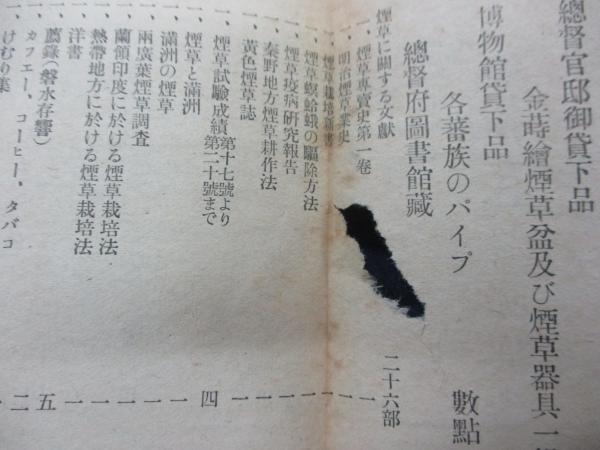 總督官邸御貸下品
金蒔繪煙草盆及び煙草器具一
博物館貸下品
各蕃族のパイプ 數點
總督府圖書館藏
煙草に關する文獻 二十六部
一、煙草專賣史第一卷 一
一、明治煙草業史 一
一、煙草栽培新書 一
一、煙草螟蛉蛾の驅除方法 一
一、煙草疫病研究報告 一
一、秦野地方煙草耕作法 一
一、黃色煙草誌 一
一、煙草試驗成績 第十七號より第二十號まで 四
一、煙草と滿洲 一
一、滿洲の煙草 一
一、兩廣葉煙草調査 一
一、蘭領印度に於ける煙草栽培法 一
一、熱帶地方に於ける煙草栽培法 一
一、洋書 五
一、蔫錄(磐水存響) 二
一、カフエー、コーヒー、タバコ 一
一、けむり集